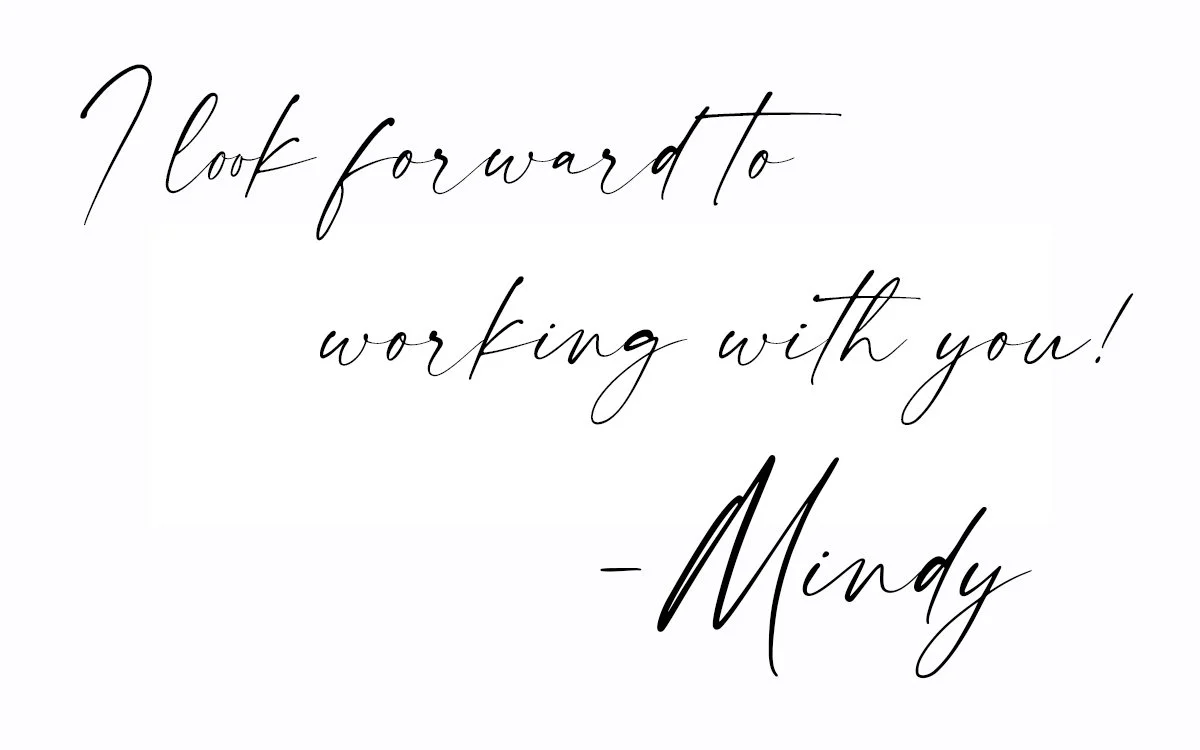 I look forward to
working with you!
- Mindy